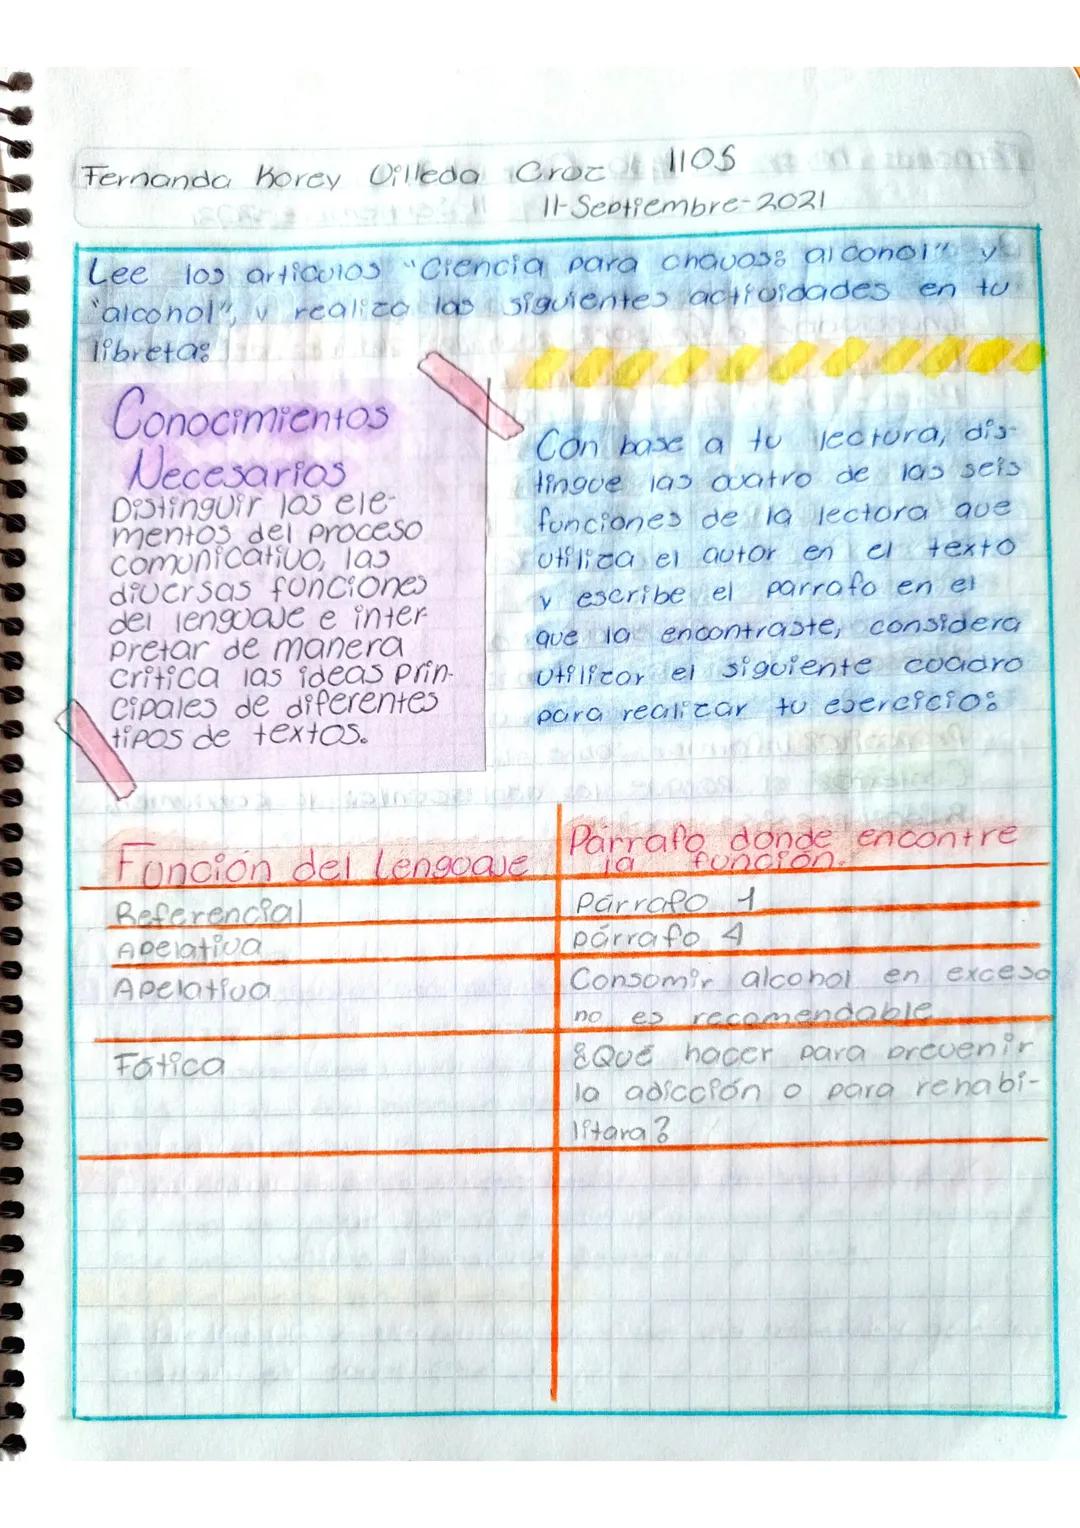 Fernanda Korey Villeda Cruz 1105
11-Septiembre-2021
Lee los artículos "Ciencia para chavos: alcohol" y
"alcohol", y realiza las siguientes actividades en tu
libreta:
Conocimientos
Necesarios
Distinguir los ele-
mentos del proceso
comunicativo, las
diversas funciones
del lenguaje e inter-
pretar de manera
crítica las ideas prin-
cipales de diferentes
tipos de textos.
Con base a tu lectura, dis-
tingue las cuatro de las seis
funciones de la lectora que
utiliza el autor en el texto
y escribe el parrafo en el
que la encontraste, considera
utilizar el siguiente cuadro
para realizar tu ejercicio:
Función del Lenguaje
Párrafo donde encontre
la función.
Referencial
Párrafo 1
Apelativa
párrafo 4
Apelativa
Consumir alcohol en exceso
no es recomendable
Fática
¿Qué hacer para prevenir
la adicción o para rehabi-
litara?